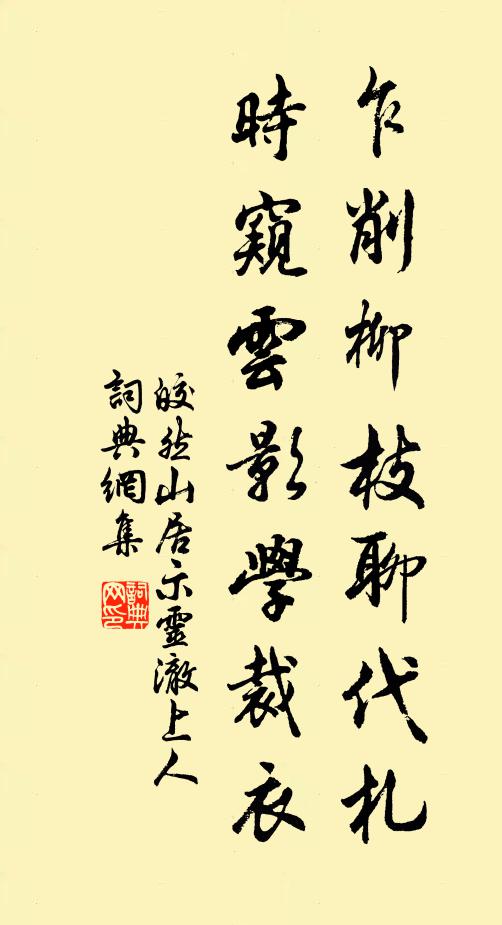 乍削柳枝聊代札
時窺雲影學裁衣
皎然山居示靈澈上人
詞典網集
詞典
网印